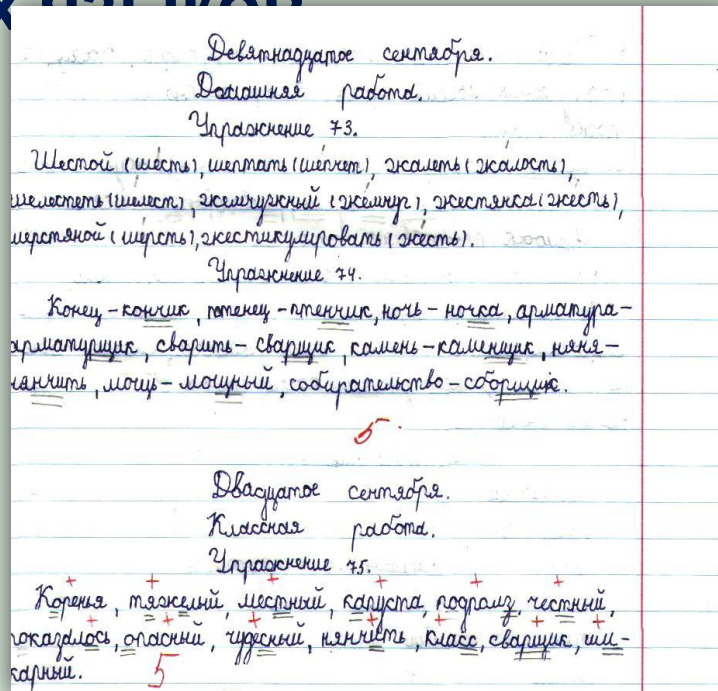 Девятнадцатое сентября.
Домашняя работа.
Упражнение 73.
Шестой (шесть), шептать (шепчет), жалеть (жалость),
шелестеть (шелест), жемчужный (жемчуг), жестянка (жесть),
шерстяной (шерсть), жестикулировать (жесть).
Упражнение 74.
Конец – кончик, птенец – птенчик, ночь – ночка, арматура –
арматурщик, сварить – сварщик, камень – каменщик, няня –
нянчить, мощь – мощный, собирательство – соборщик.
5
Двадцатое сентября.
Классная работа.
Упражнение 75.
Коренья, тяжелый, местный, капуста, подполз, честный,
показалось, опасный, чудесный, нянчить, класс, сварщик, ши-
карный. 5